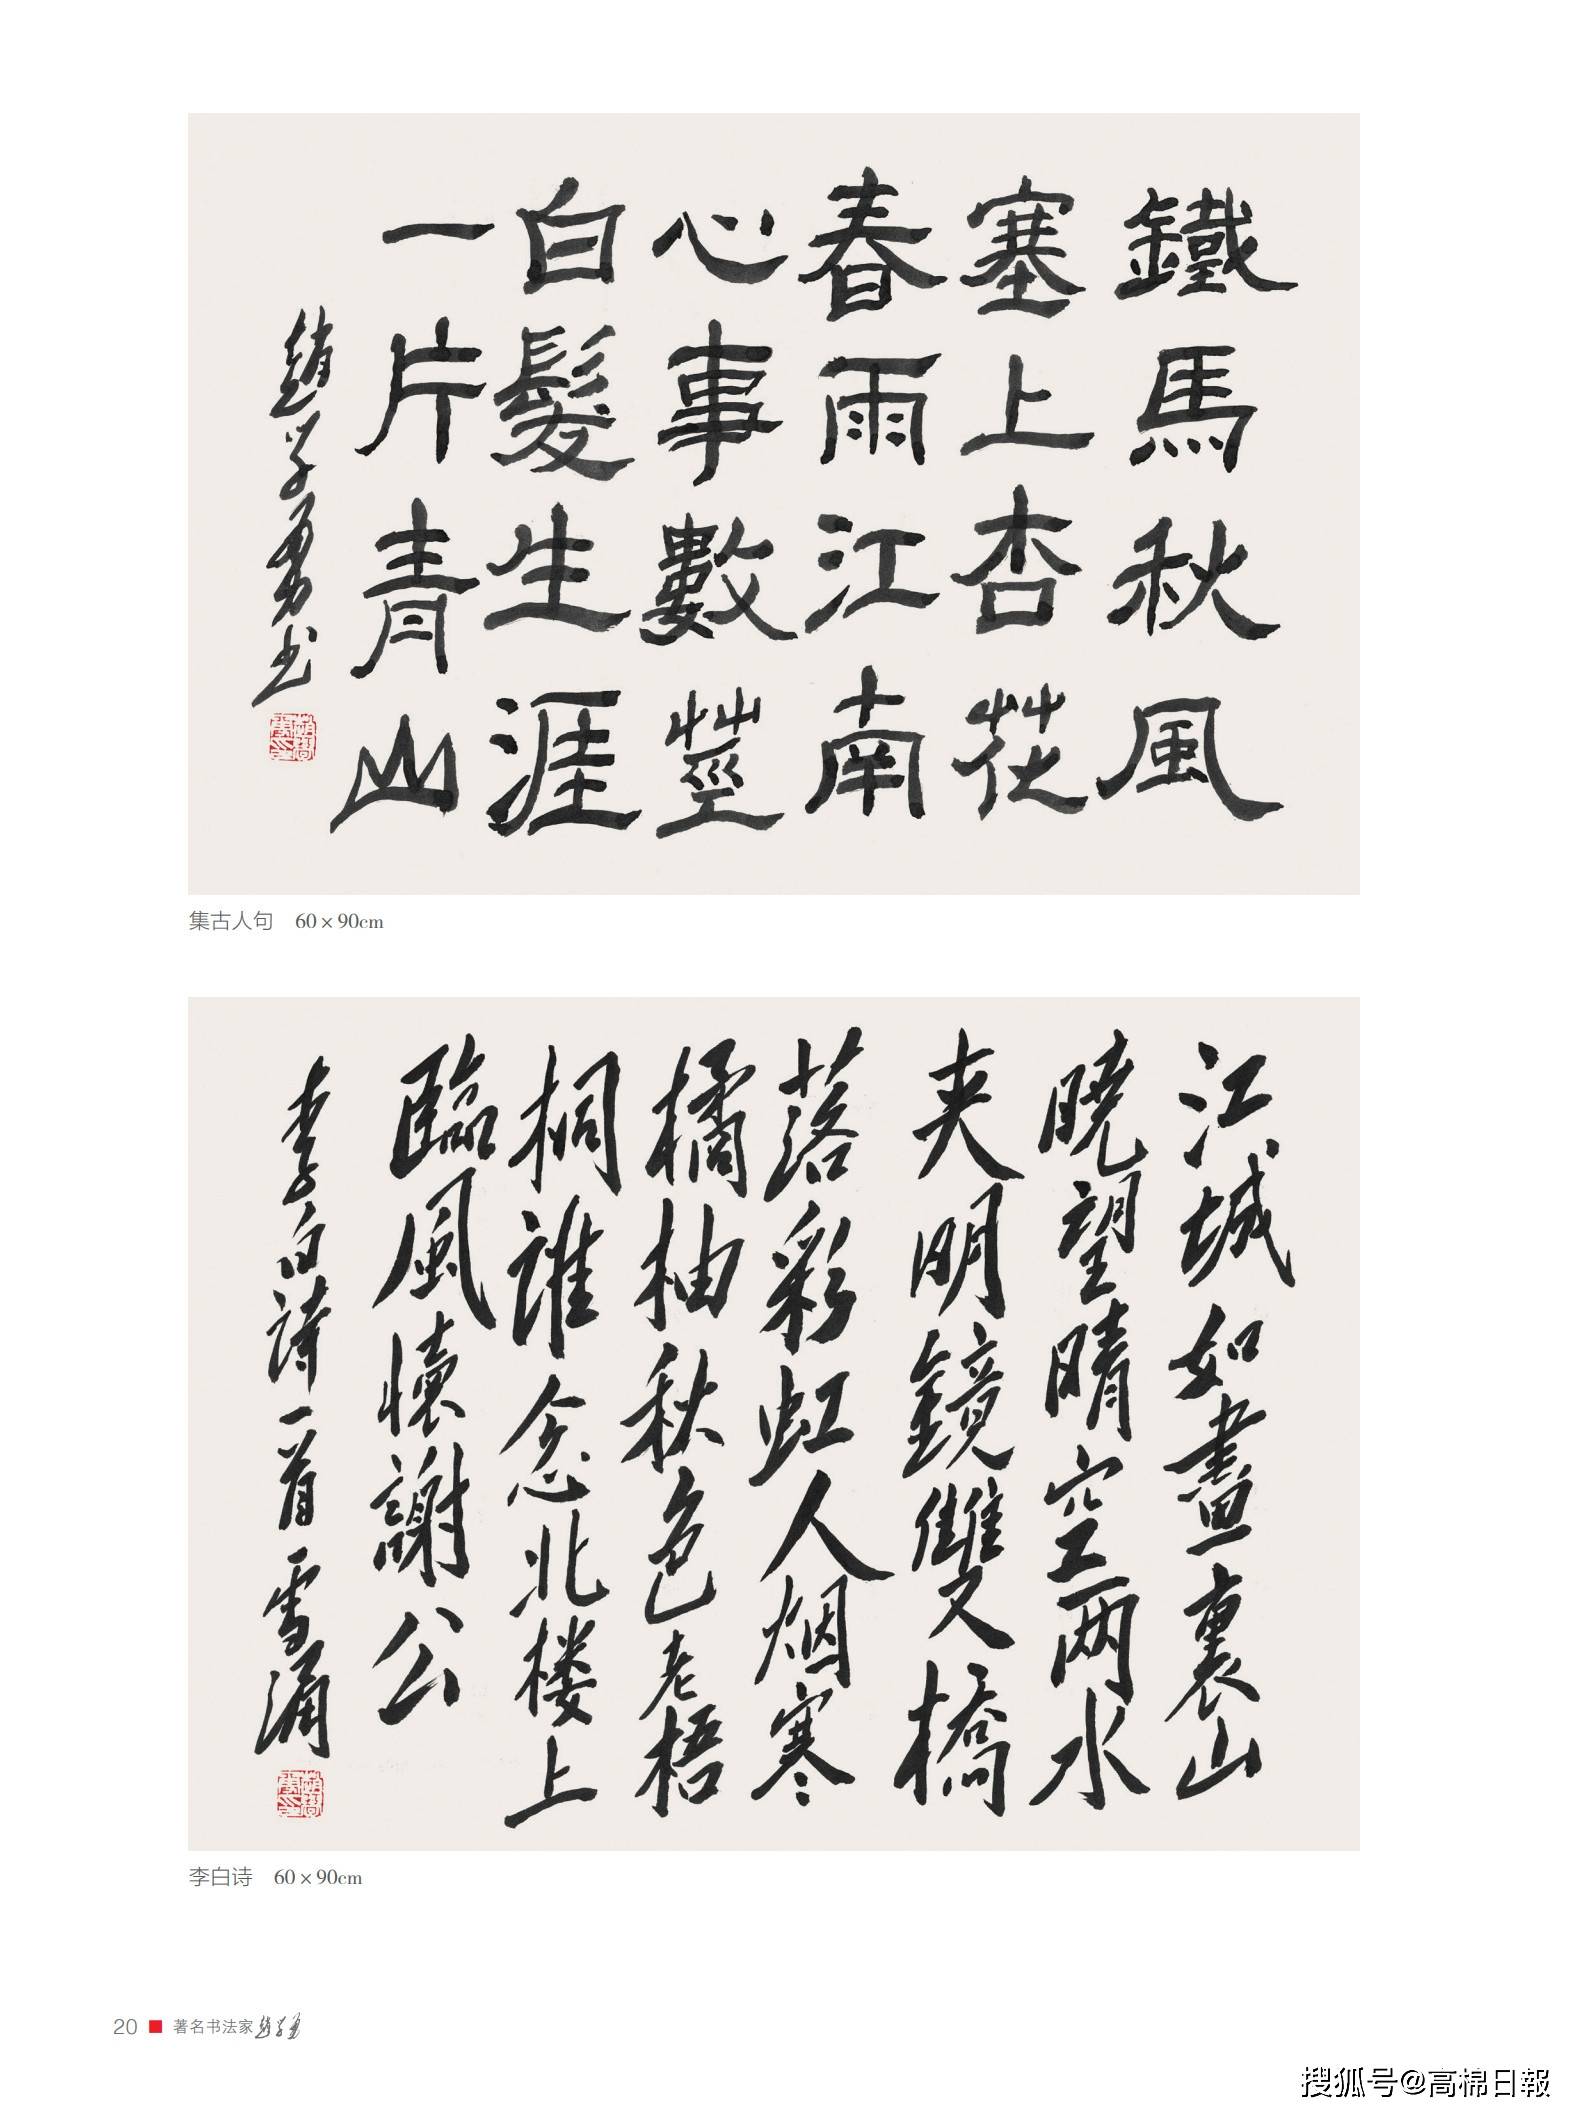 鐵馬秋風
塞上杏花
春雨江南
心事數莖
白髮生涯
一片青山
趙学勇书
集古人句 60×90cm
江城如畫裏山
曉望晴空两水
夹明鏡雙橋
落彩虹人烟寒
橘柚秋色老梧
桐谁念北楼上
臨風懷謝公
李白诗一首 雪涌
李白诗 60×90cm
20 著名书法家趙学勇
搜狐号@高棉日報